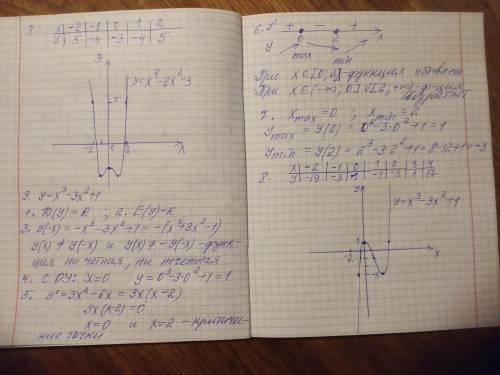 8. x | -2 | -1 | 0 | 1 | 2
y | 5 | -4 | -3 | -4 | 5
y
y=x⁴-2x²-3
5
-2 0 2 x
3. y=x³-3x²+1
1. D(y)=R ; 2. E(y)=R
3. y(-x)=-x³-3x²+1=-(x³+3x²-1)
y(x)≠y(-x) и y(x)≠-y(-x)-функ-
ция ни четная, ни нечетная
4. С ОУ: x=0 y=0³-3·0²+1=1
5. y'=3x²-6x=3x(x-2)
3x(x-2)=0
x=0 и x=2 -критичес-
кие точки
6. y' + - +
0 2 x
y max min
При x∈[0;2]-функция убывает
При x∈(-∞;0]∪[2;+∞)-ф-ция
возрастает
7. xmax=0 ; xmin=2
ymax=y(0)=0³-3·0²+1=1
ymin=y(2)=2³-3·2²+1=8-12+1=-3
8. x | -2 | -1 | 0 | 1 | 2 | 3 | 4
y | -19 | -3 | 1 | -1 | -3 | 1 | 17
y
y=x³-3x²+1
1
-2 x
-3